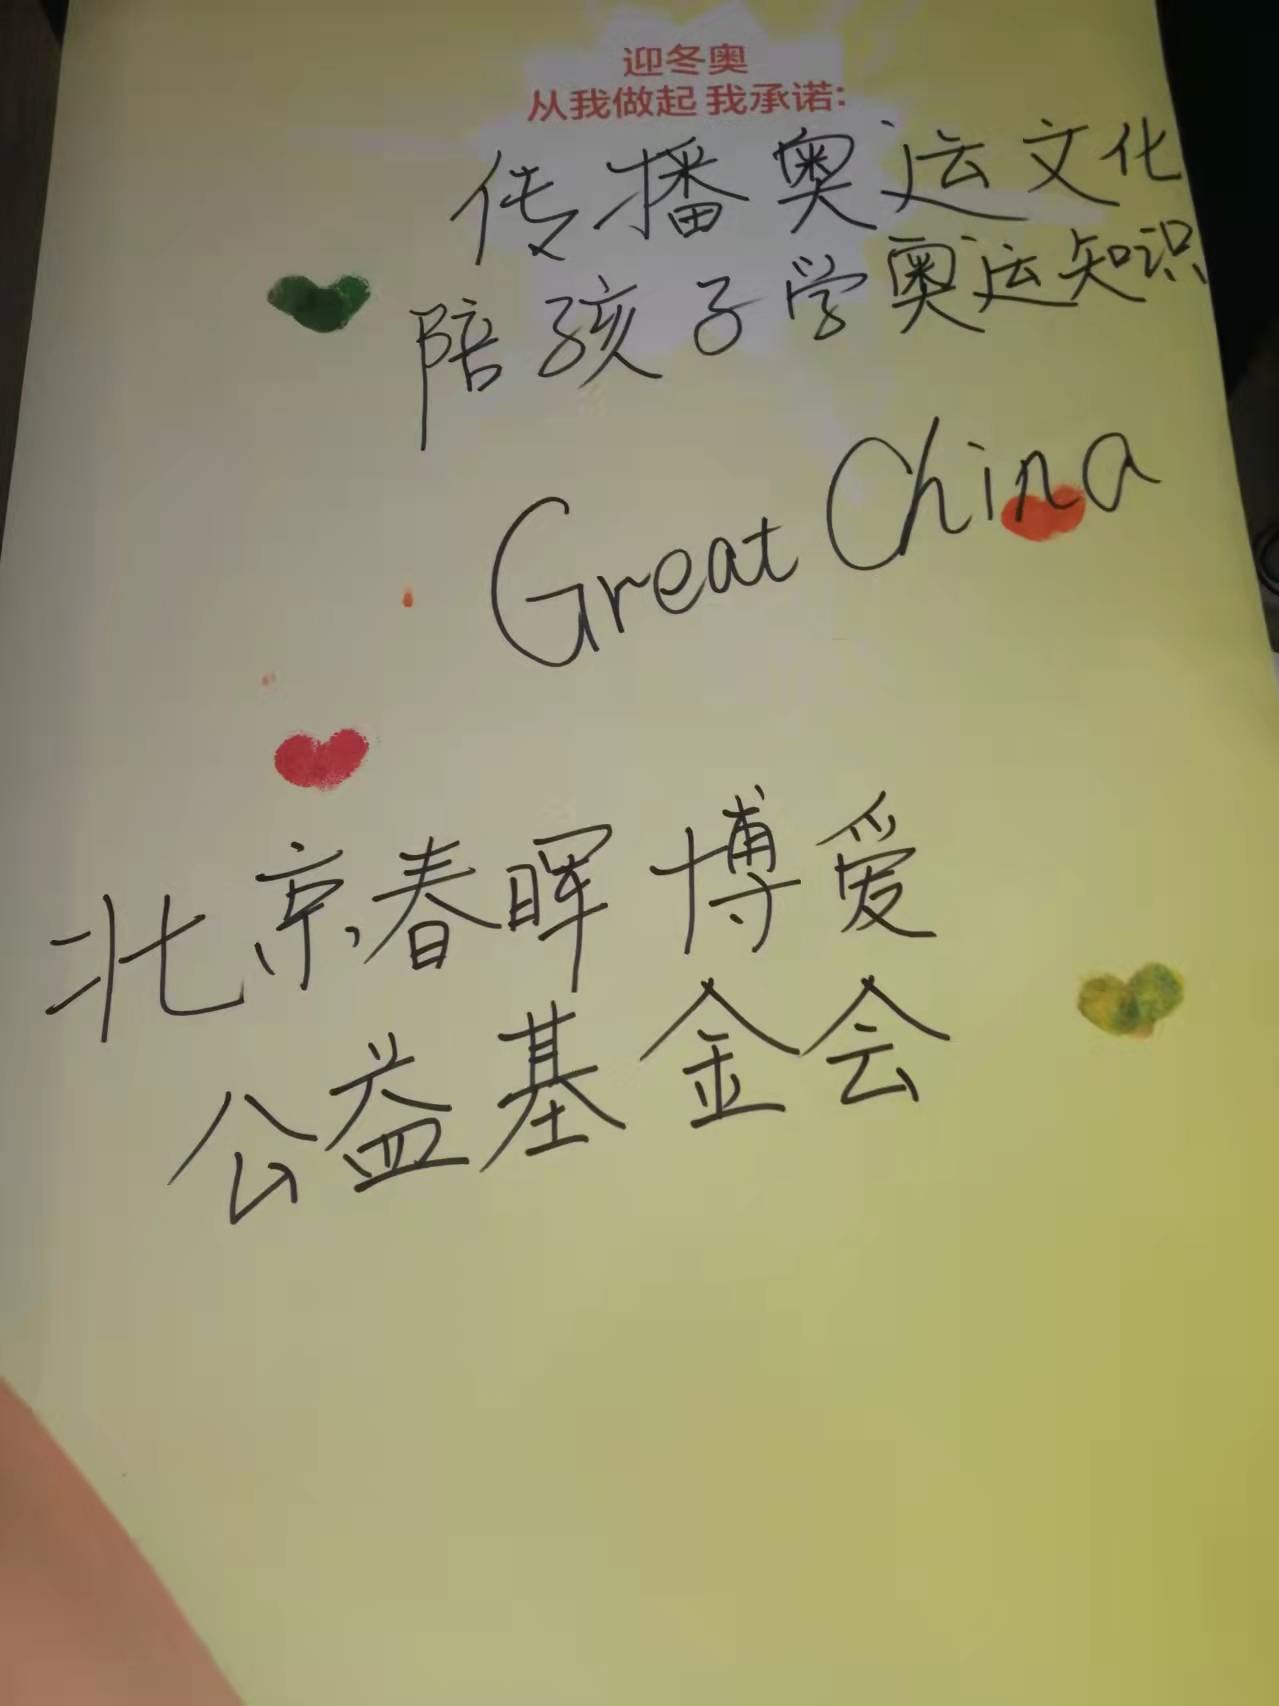 迎冬奥
从我做起 我承诺:
传播奥运文化
陪孩子学奥运知识
Great China
北京春晖博爱
公益基金会